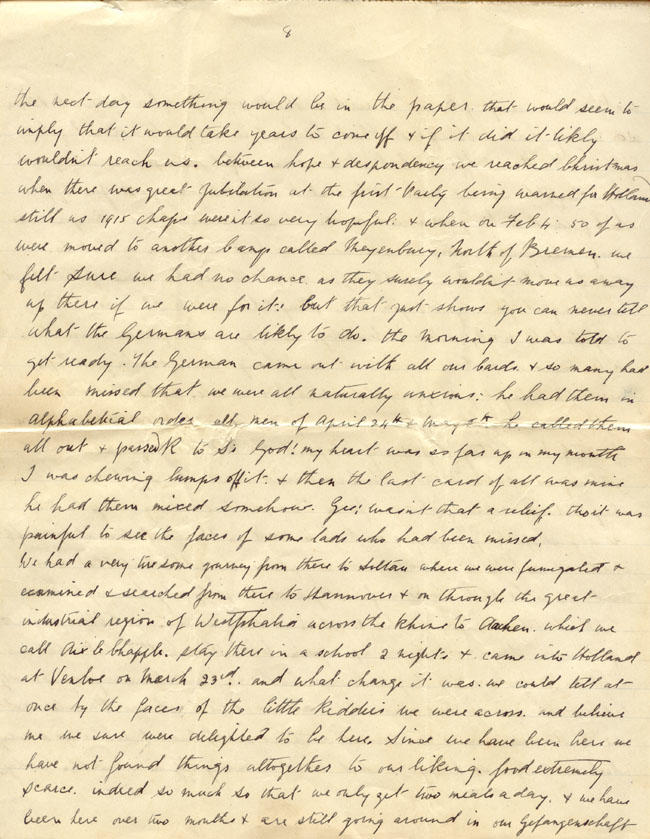 8
the next day something would be in the paper. that would seem to
imply that it would take years to come off & if it did it likely
wouldn't reach us. between hope & despondency we reached Christmas
when there was great jubilation at the first Party being warned for Holland
still us 1915 chaps weren't so very hopeful. & when on Feb 4. 50 of us
were moved to another Camp called Meyenburg, North of Bremen. we
felt sure we had no chance. as they surely wouldn't move us away
up there if we were for it: but that just shows you can never tell
what the Germans are likely to do. the morning I was told to
get ready. The German came out with all our cards. & so many had
been missed that we were all naturally anxious: he had them in
alphabetical order, all men of April 24th & May 8th he called them
all out & passed R to S. God! my heart was so far up in my mouth
I was chewing lumps off it. & then the last card of all was mine
he had them mixed somehow. Gee! wasn't that a relief. tho it was
painful to see the faces of some lads who had been missed.
We had a very tiresome journey from there to Soltau where we were fumigated &
examined & searched from there to Hannover & on through the great
industrial region of Westphalia across the Rhine to Aachen. which we
call Aix la Chapple. stay there in a school 2 nights & came into Holland
at Venloe on March 23rd. and what change it was. we could tell at
once by the faces of the little kiddies we were across. and believe
me we sure were delighted to be here. Since we have been here we
have not found things altogether to our liking. food extremely
scarce. indeed so much so that we only get two meals a day. & we have
been here over two months & are still going around in our Gefangenschaft